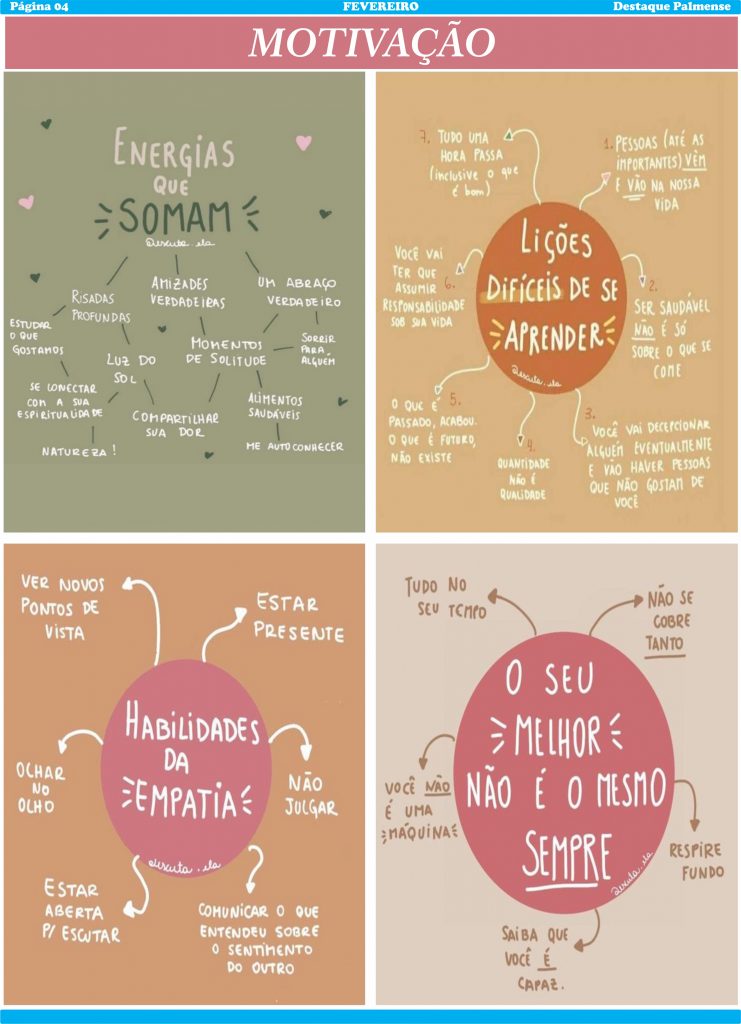 Página 04
FEVEREIRO
Destaque Palmense
MOTIVAÇÃO
ENERGIAS
QUE
SOMAM
@escuta.ela
RISADAS
PROFUNDAS
AMIZADES
VERDADEIRAS
UM ABRAÇO
VERDADEIRO
ESTUDAR
O QUE
GOSTAMOS
LUZ DO
SOL
MOMENTOS
DE SOLITUDE
SORRIR
PARA
ALGUÉM
SE CONECTAR
COM A SUA
ESPIRITUALIDADE
COMPARTILHAR
SUA DOR
ALIMENTOS
SAUDÁVEIS
NATUREZA!
ME AUTOCONHECER
LIÇÕES
DIFÍCEIS DE SE
APRENDER
@escuta.ela
1. PESSOAS (ATÉ AS
IMPORTANTES) VÊM
E VÃO NA NOSSA
VIDA
2.
SER SAUDÁVEL
NÃO É SÓ
SOBRE O QUE SE
COME
3.
VOCÊ VAI DECEPCIONAR
ALGUÉM EVENTUALMENTE
E VÃO HAVER PESSOAS
QUE NÃO GOSTAM DE
VOCÊ
4.
QUANTIDADE
NÃO É
QUALIDADE
5.
O QUE É
PASSADO, ACABOU.
O QUE É FUTURO,
NÃO EXISTE
VOCÊ VAI
TER QUE
ASSUMIR 6.
RESPONSABILIDADE
SOB SUA VIDA
7. TUDO UMA
HORA PASSA
(inclusive o que
é bom)
HABILIDADES
DA
EMPATIA
@escuta.ela
VER NOVOS
PONTOS DE
VISTA
ESTAR
PRESENTE
OLHAR
NO
OLHO
NÃO
JULGAR
ESTAR
ABERTA
P/ ESCUTAR
COMUNICAR O QUE
ENTENDEU SOBRE
O SENTIMENTO
DO OUTRO
O SEU
MELHOR
NÃO É O MESMO
SEMPRE
@escuta.ela
TUDO NO
SEU TEMPO
NÃO SE
COBRE
TANTO
VOCÊ NÃO
É UMA
MÁQUINA
RESPIRE
FUNDO
SAIBA QUE
VOCÊ É
CAPAZ.